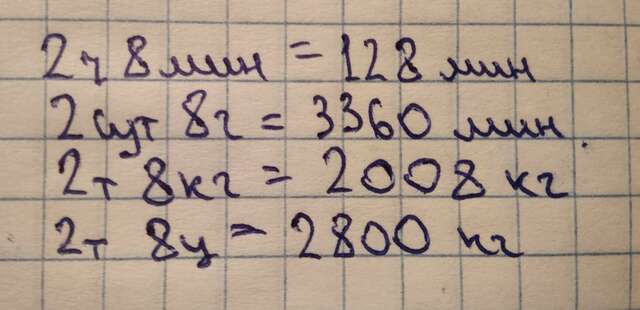 2ч 8мин = 128 мин
2сут 8ч = 3360 мин.
2т 8кг = 2008 кг
2т 8ц = 2800 кг